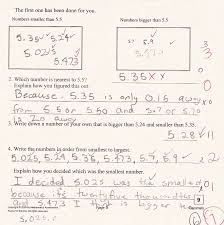 The first one has been done for you.
Numbers smaller than 5.5 Numbers bigger than 5.5
5.35 5.24 5.7 5.9
5.025
5.473
2. Which number is nearest to 5.5?
5.35 x x
Explain how you figured this out.
Because 5.35 is only 0.15 away
from 5.5 or 5.50 and 5.7 or 5.70
is 20 away
3. Write down a number of your own that is bigger than 5.24 and smaller than 5.35.
5.28
4. Write the numbers in order from smallest to largest.
5.025, 5.24, 5.35, 5.473, 5.7, 5.9
Explain how you decided which was the smallest number.
I decided 5.025 was the smallest
because it's twenty five thousandths
and 5.473 that is bigger
9
5.025